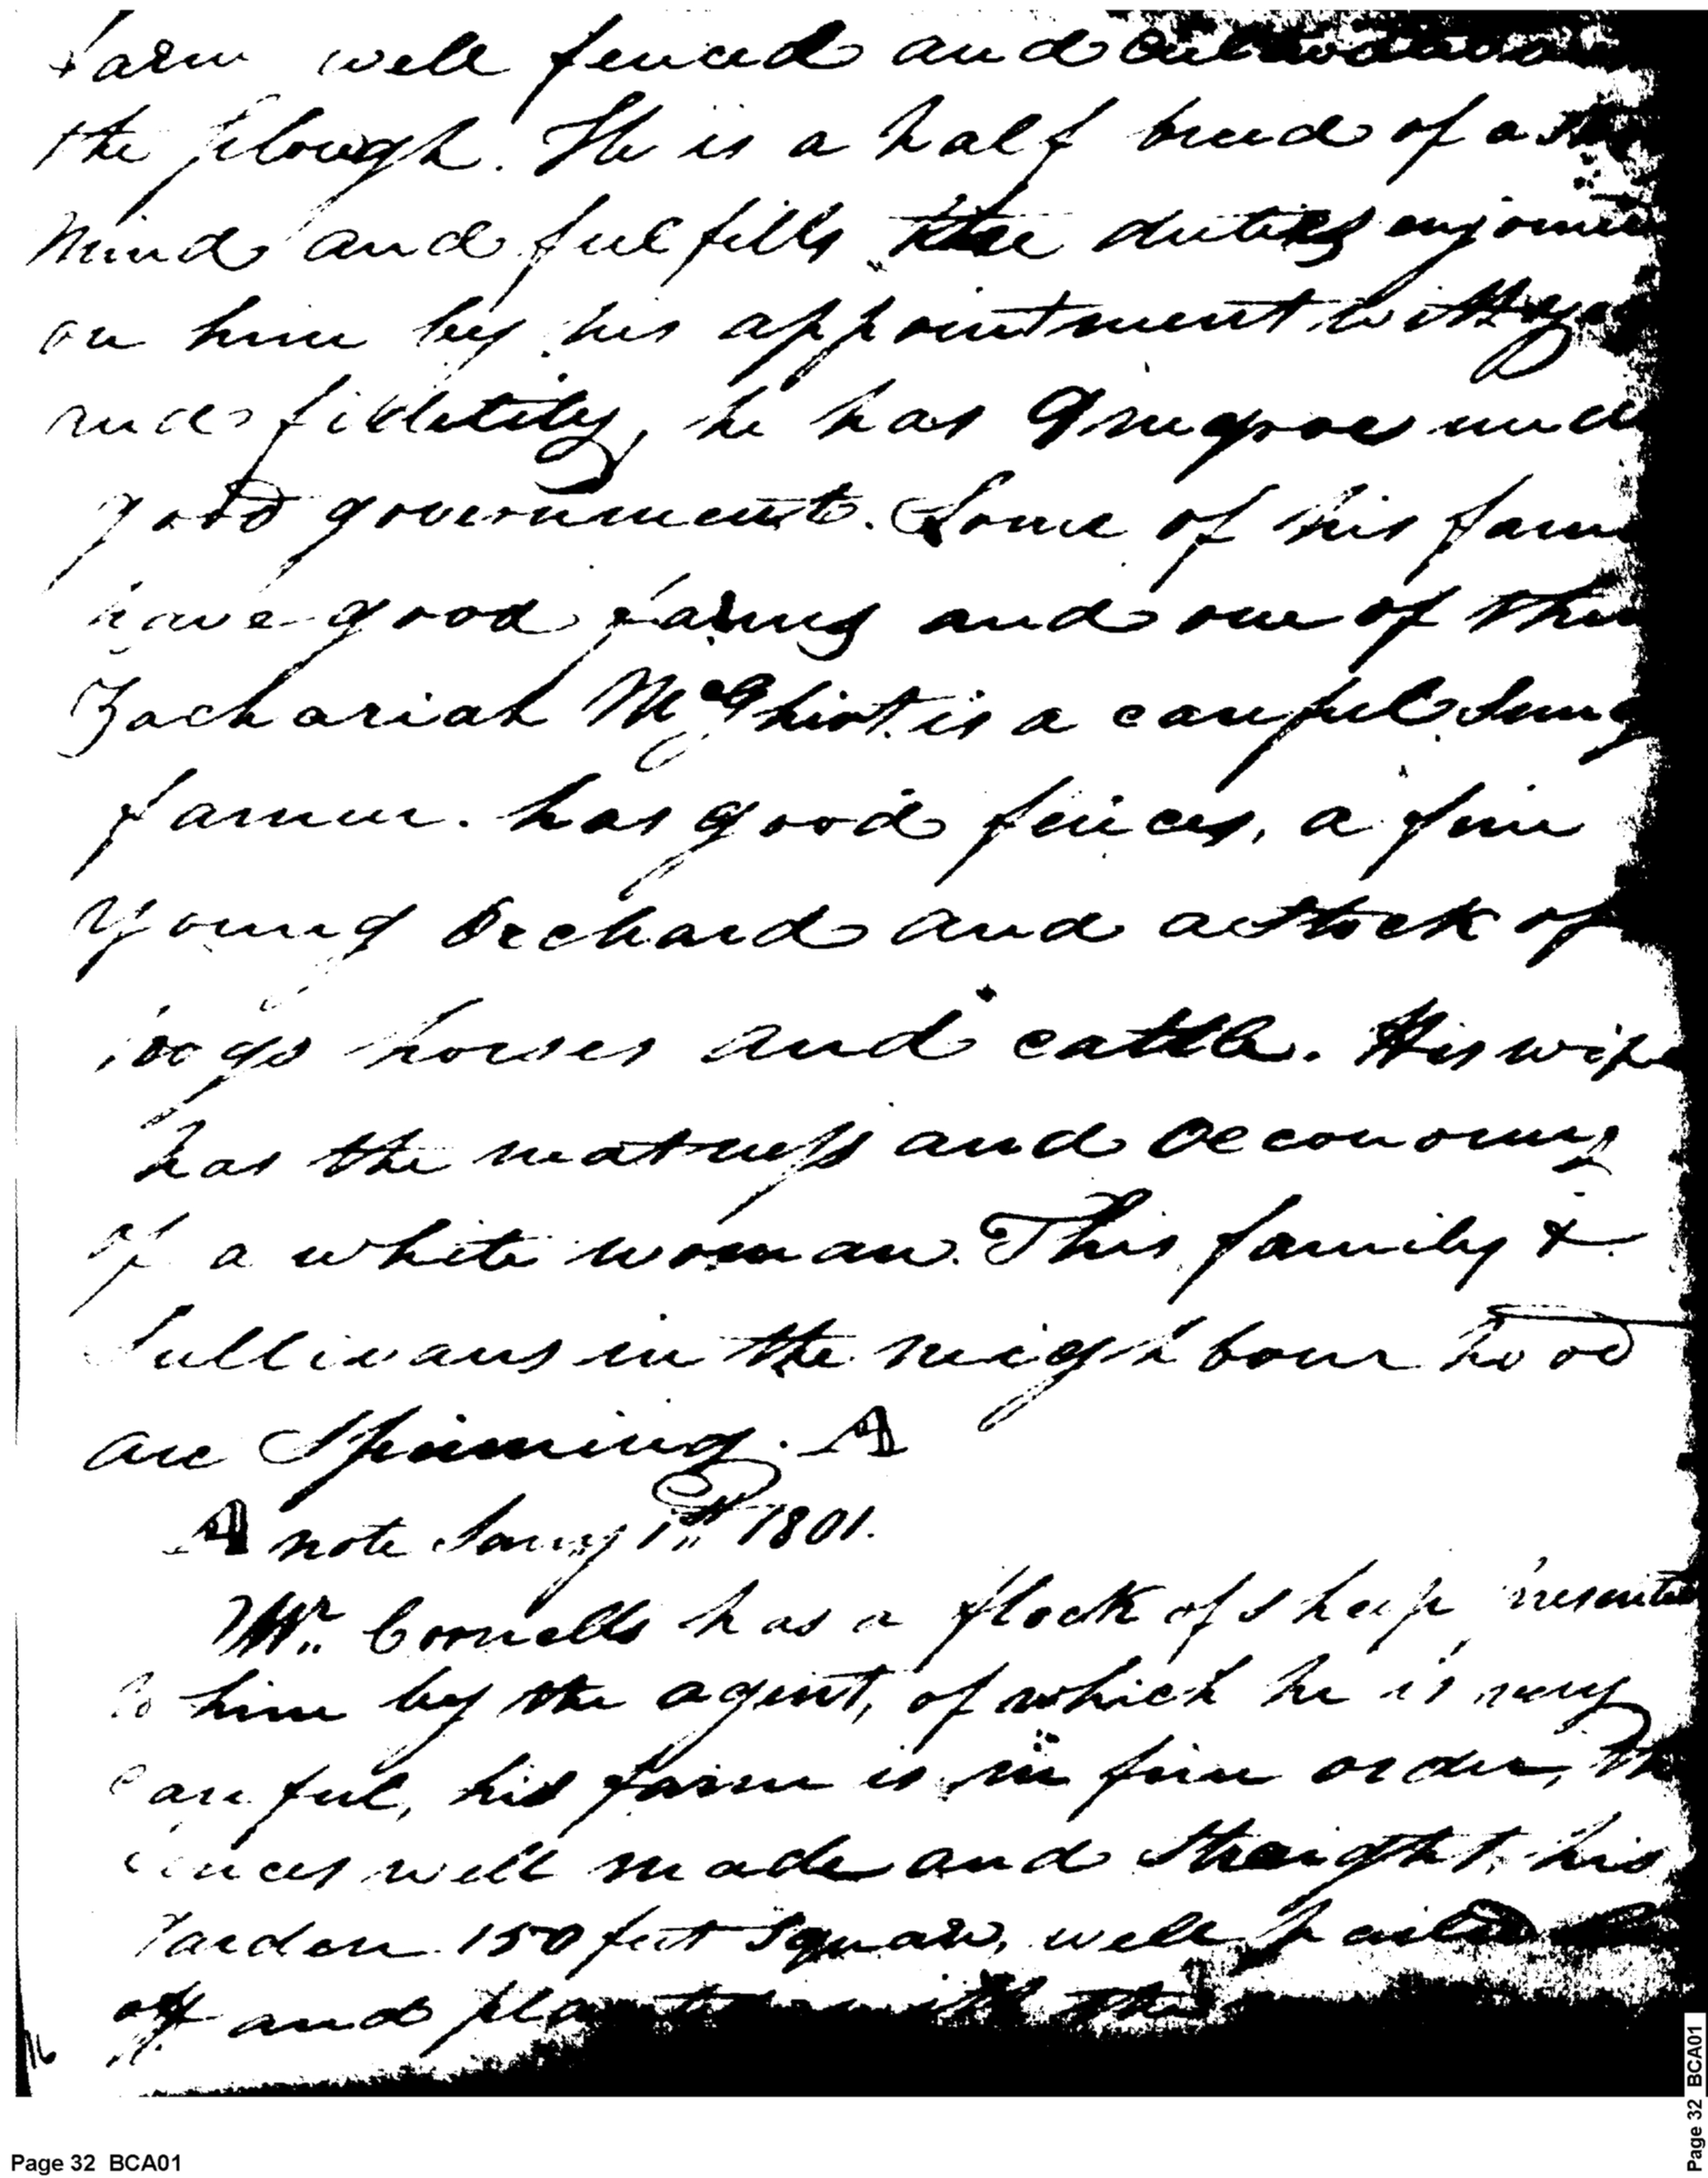 farm well fenced and cultivated
the plough. He is a half breed of a
mind and fulfills the duties enjoined
on him by his appointment with
and fidelity, he has 9 negroes und
good government. Some of his fam
have good farms and one of them
Zachariah McGhirt is a careful snug
farmer. has good fences, a fine
young Orchard and a stock of
hogs horses and cattle. His wife
has the neatness and oeconomy
of a white woman. This family &
Sullivans in the neighbourhood
are Spinning. A
A note Jany 1st 1801.
Mr. Cornells has a flock of sheep presented
to him by the agent, of which he is very
careful, his farm is in fine order, the
fences well made and straight, his
Garden 150 feet square, well pailed
off and planted with the
16
Page 32 BCA01
Page 32 BCA01